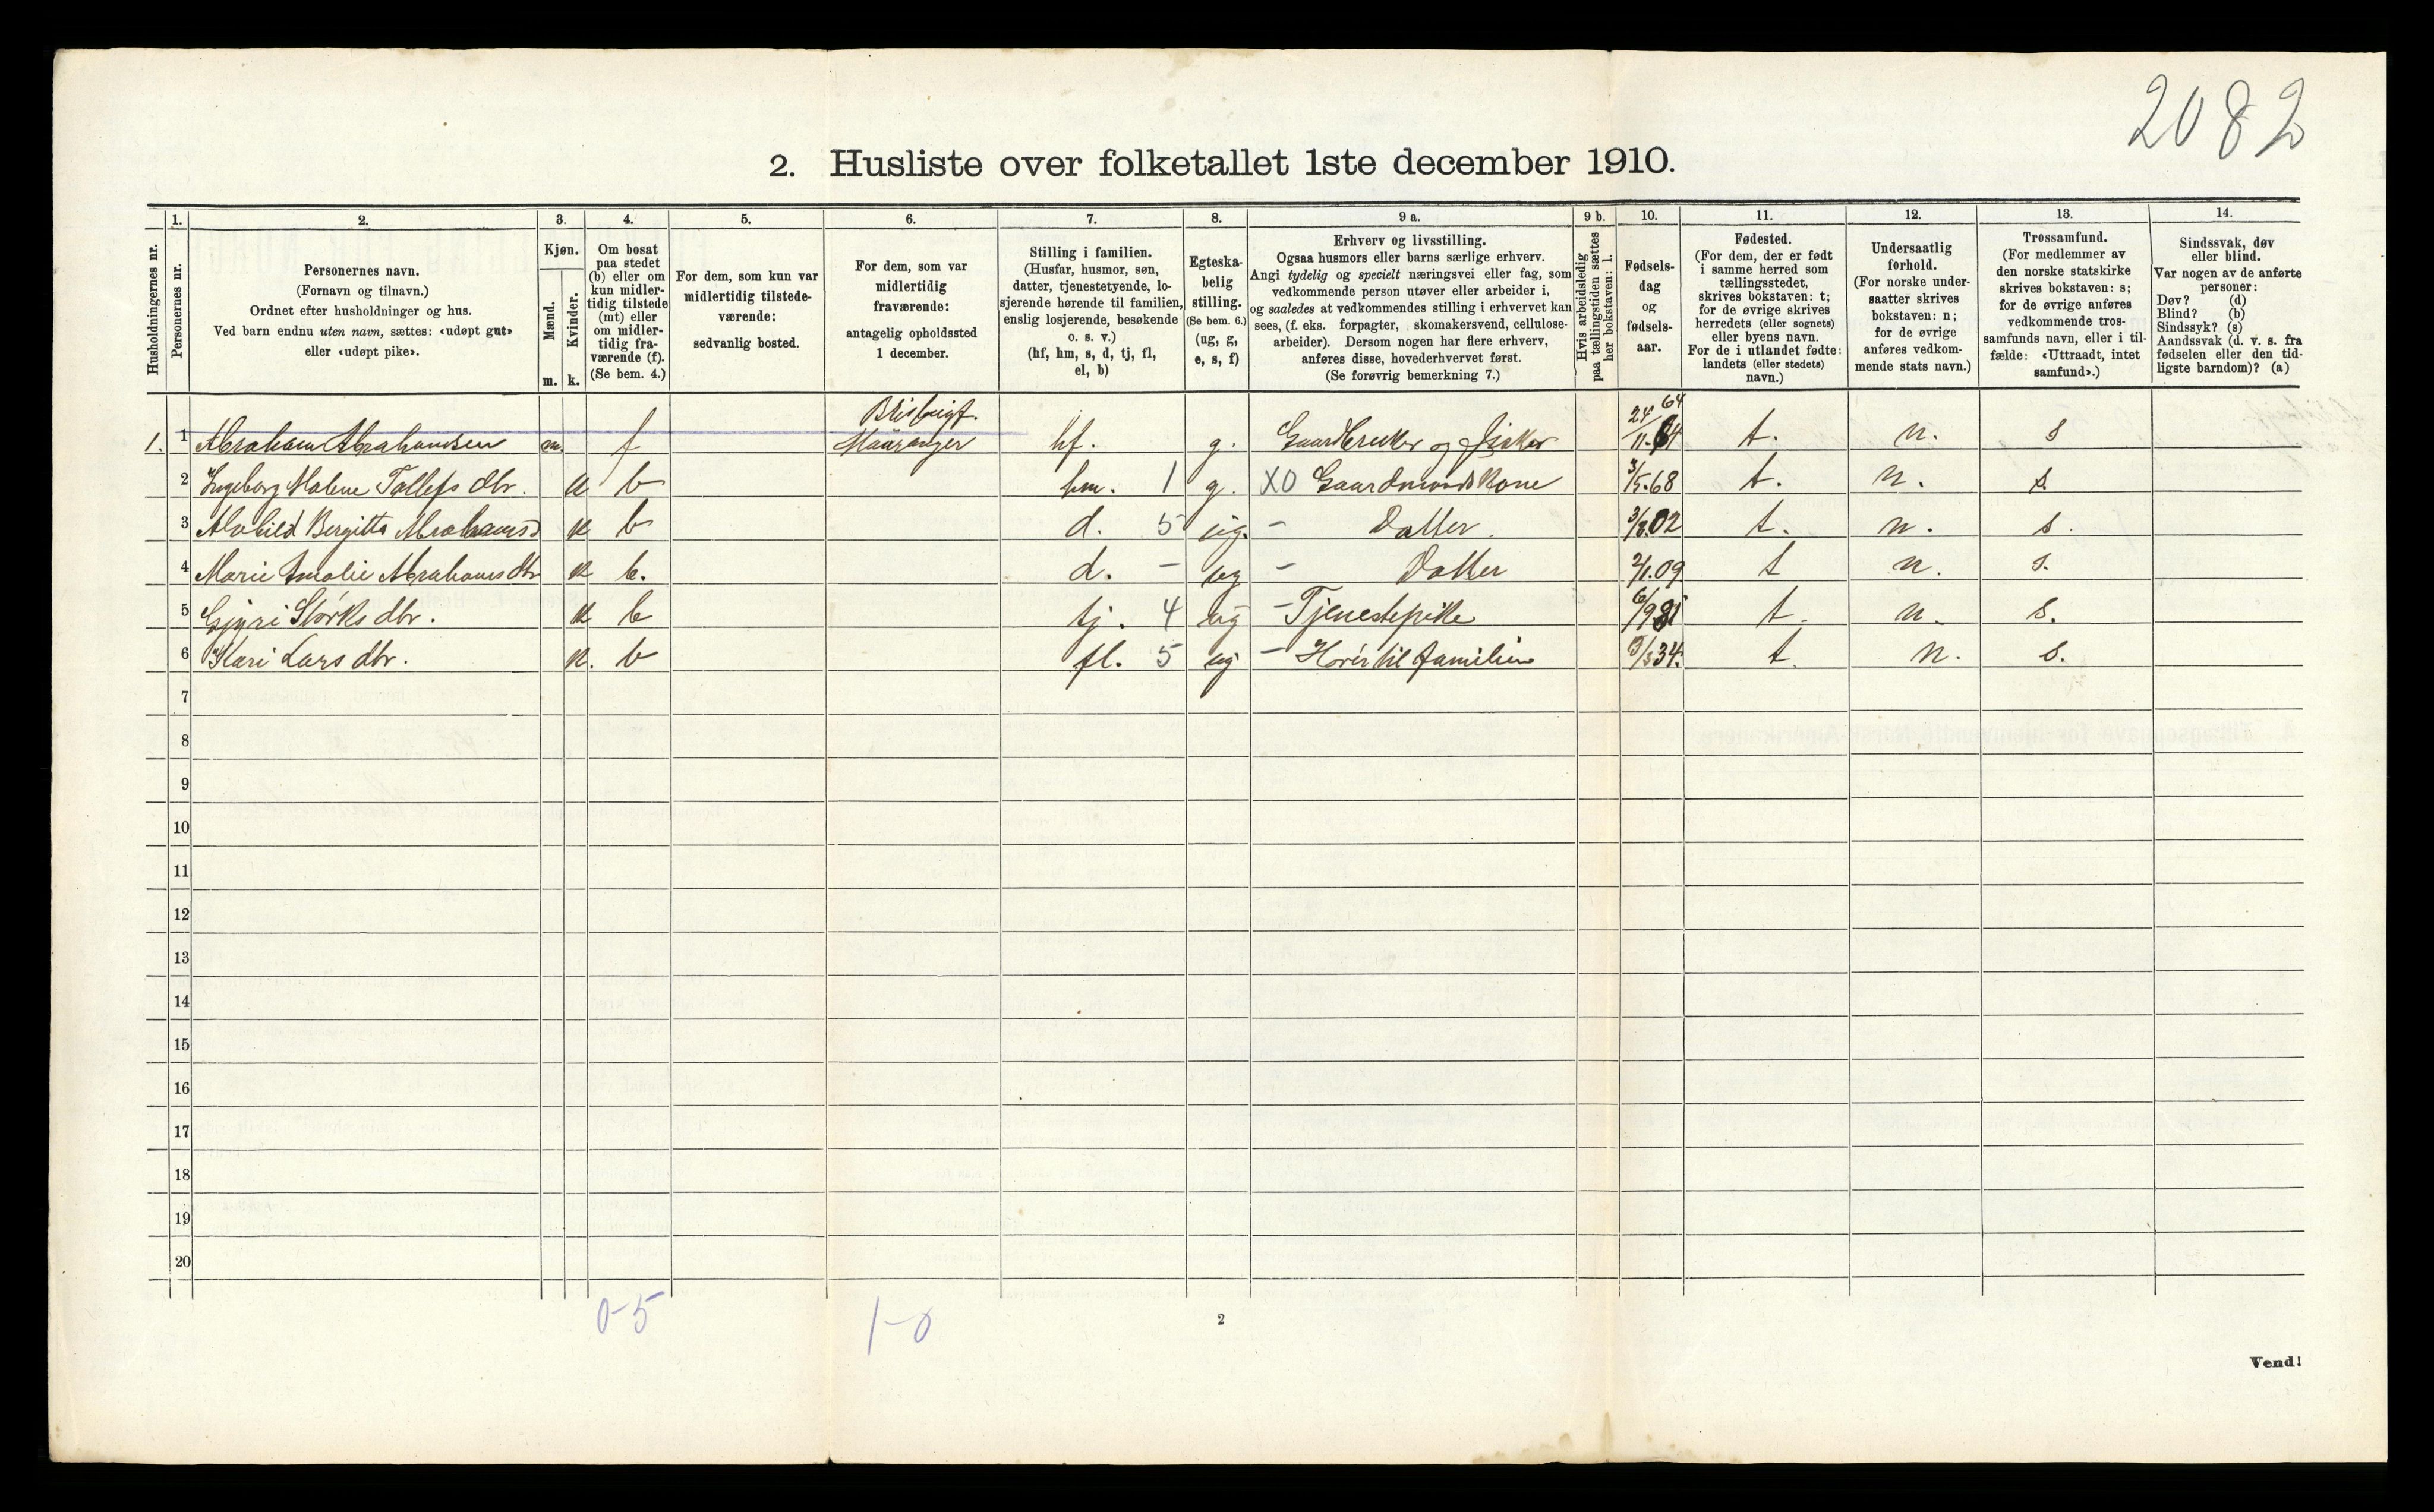 2082
2. Husliste over folketallet 1ste december 1910.
Husholdningernes nr.
1.
Personernes nr.
2.
Personernes navn.
(Fornavn og tilnavn.)
Ordnet efter husholdninger og hus.
Ved barn endnu uten navn, sættes: «udøpt gut»
eller «udøpt pike».
3.
Kjøn.
Mænd.
Kvinder.
m. k.
4.
Om bosat
paa stedet
(b) eller om
kun midler-
tidig tilstede
(mt) eller
om midler-
tidig fra-
værende (f).
(Se bem. 4.)
5.
For dem, som kun var
midlertidig tilstede-
værende:
sedvanlig bosted.
6.
For dem, som var
midlertidig
fraværende:
antagelig opholdssted
1 december.
7.
Stilling i familien.
(Husfar, husmor, søn,
datter, tjenestetyende, lo-
sjerende hørende til familien,
enslig losjerende, besøkende
o. s. v.)
(hf, hm, s, d, tj, fl,
el, b)
8.
Egteska-
belig
stilling.
(Se bem. 6.)
(ug, g,
e, s, f)
9 a.
Erhverv og livsstilling.
Ogsaa husmors eller barns særlige erhverv.
Angi tydelig og specielt næringsvei eller fag, som
vedkommende person utøver eller arbeider i,
og saaledes at vedkommendes stilling i erhvervet kan
sees, (f. eks. forpagter, skomakersvend, cellulose-
arbeider). Dersom nogen har flere erhverv,
anføres disse, hovederhvervet først.
(Se forøvrig bemerkning 7.)
9 b.
Hvis arbeidsledig
paa tællingstiden sættes
her bokstaven: l.
10.
Fødsels-
dag
og
fødsels-
aar.
11.
Fødested.
(For dem, der er født
i samme herred som
tællingsstedet,
skrives bokstaven: t;
for de øvrige skrives
herredets (eller sognets)
eller byens navn.
For de i utlandet fødte:
landets (eller stedets)
navn.)
12.
Undersaatlig
forhold.
(For norske under-
saatter skrives
bokstaven: n;
for de øvrige
anføres vedkom-
mende stats navn.)
13.
Trossamfund.
(For medlemmer av
den norske statskirke
skrives bokstaven: s;
for de øvrige anføres
vedkommende tros-
samfunds navn, eller i til-
fælde: «Uttraadt, intet
samfund».)
14.
Sindssvak, døv
eller blind.
Var nogen av de anførte
personer:
Døv? (d)
Blind? (b)
Sindssyk? (s)
Aandssvak (d. v. s. fra
fødselen eller den tid-
ligste barndom)? (a)
1. 1 Abraham Abrahamsen m. f Mauranger hf. g. Gaardbruker og fisker 24/11-64 64 t. n. s
2 Ingeborg Malene Tollefs dtr. k b hm. 1 g. XO Gaardmandskone 3/5.68 t. n. s.
3 Alvhild Bergitta Abrahamsd k b d. 5 ug. - Datter. 3/8.02 t. n. s.
4 Marie Amalie Abrahams dtr k b. d. - ug - Datter 2/1.09 t n. s.
5 Gjyri Størks dtr. k b tj. 4 ug - Tjenestepike t. n. s.
6 Kari Lars dtr. k. b fl. 5 ug - Hører til familien t. n. s.
7
8
9
10
11
12
13
14
15
16
17
18
19
20
0-5
1-0
2
Vend!